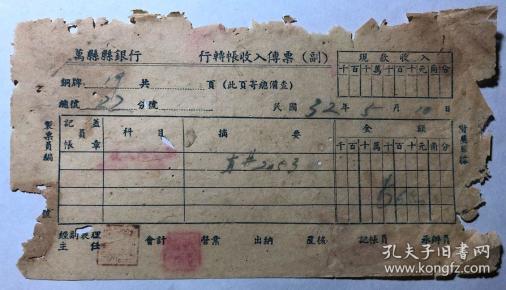 萬縣縣銀行 行轉帳收入傳票（副）
現款收入
千百十萬千百十元角分
銅牌 19 共 頁（此頁寄總備查）
總號 22 分號
民國 32 年 5 月 10 日
製票員編 號
記帳員 蓋章 科目 摘要 金額
千百十萬千百十元角分
附單據
經副襄理 主任 會計 營業 出納 覆核 記帳員
孔夫子旧书网
www.kongfz.com